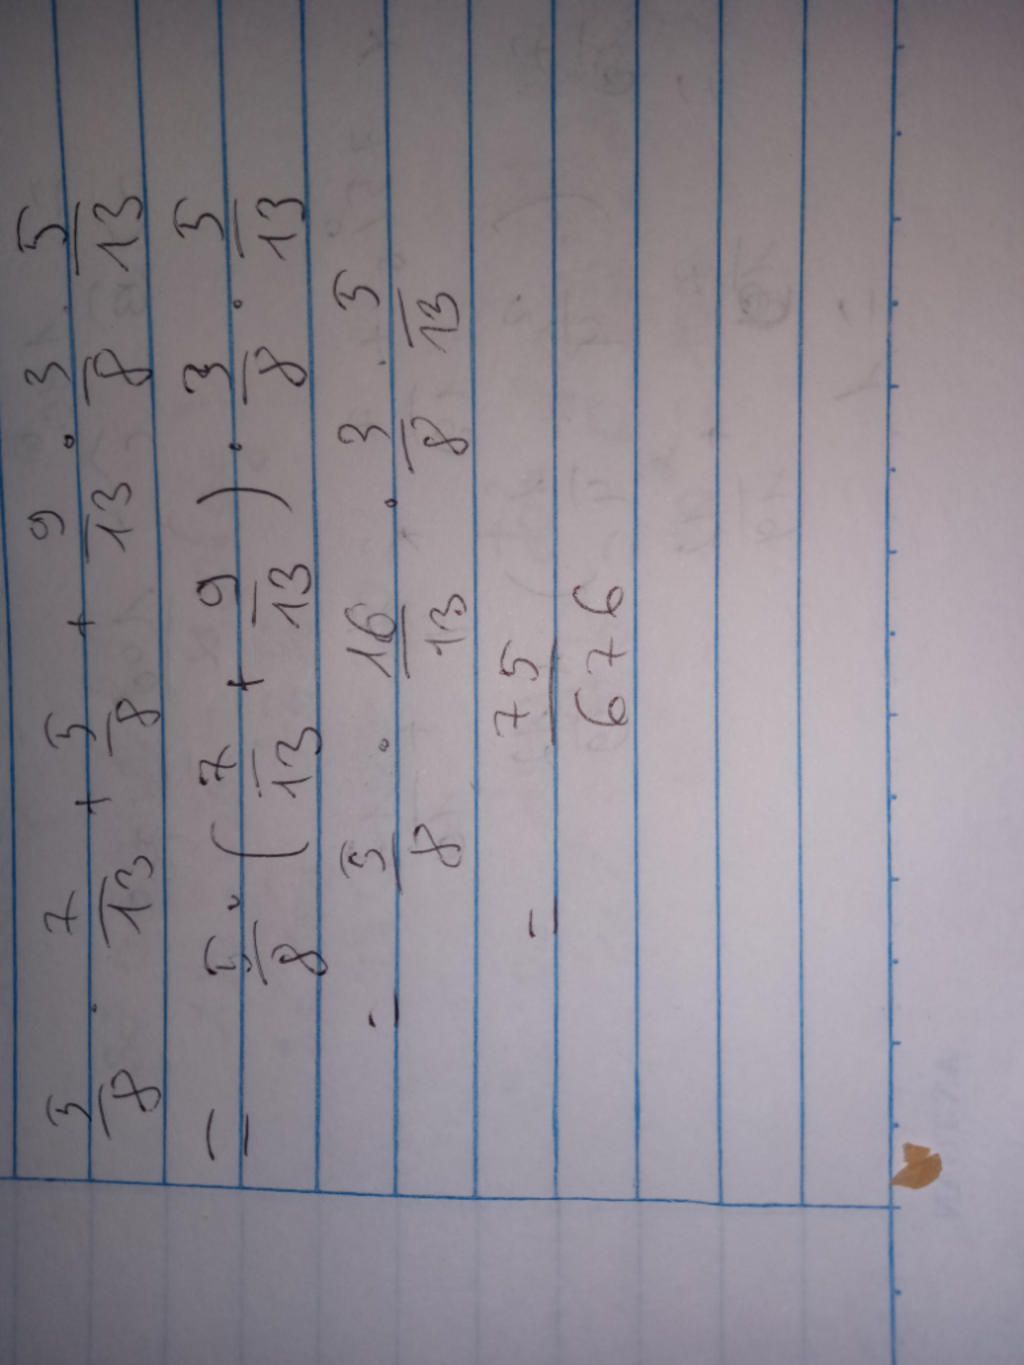 5/8 . 7/13 + 5/8 + 9/13 . 3/8 . 5/13
= 5/8 . ( 7/13 + 9/13 ) . 3/8 . 5/13
= 5/8 . 16/13 . 3/8 . 5/13
= 75/676